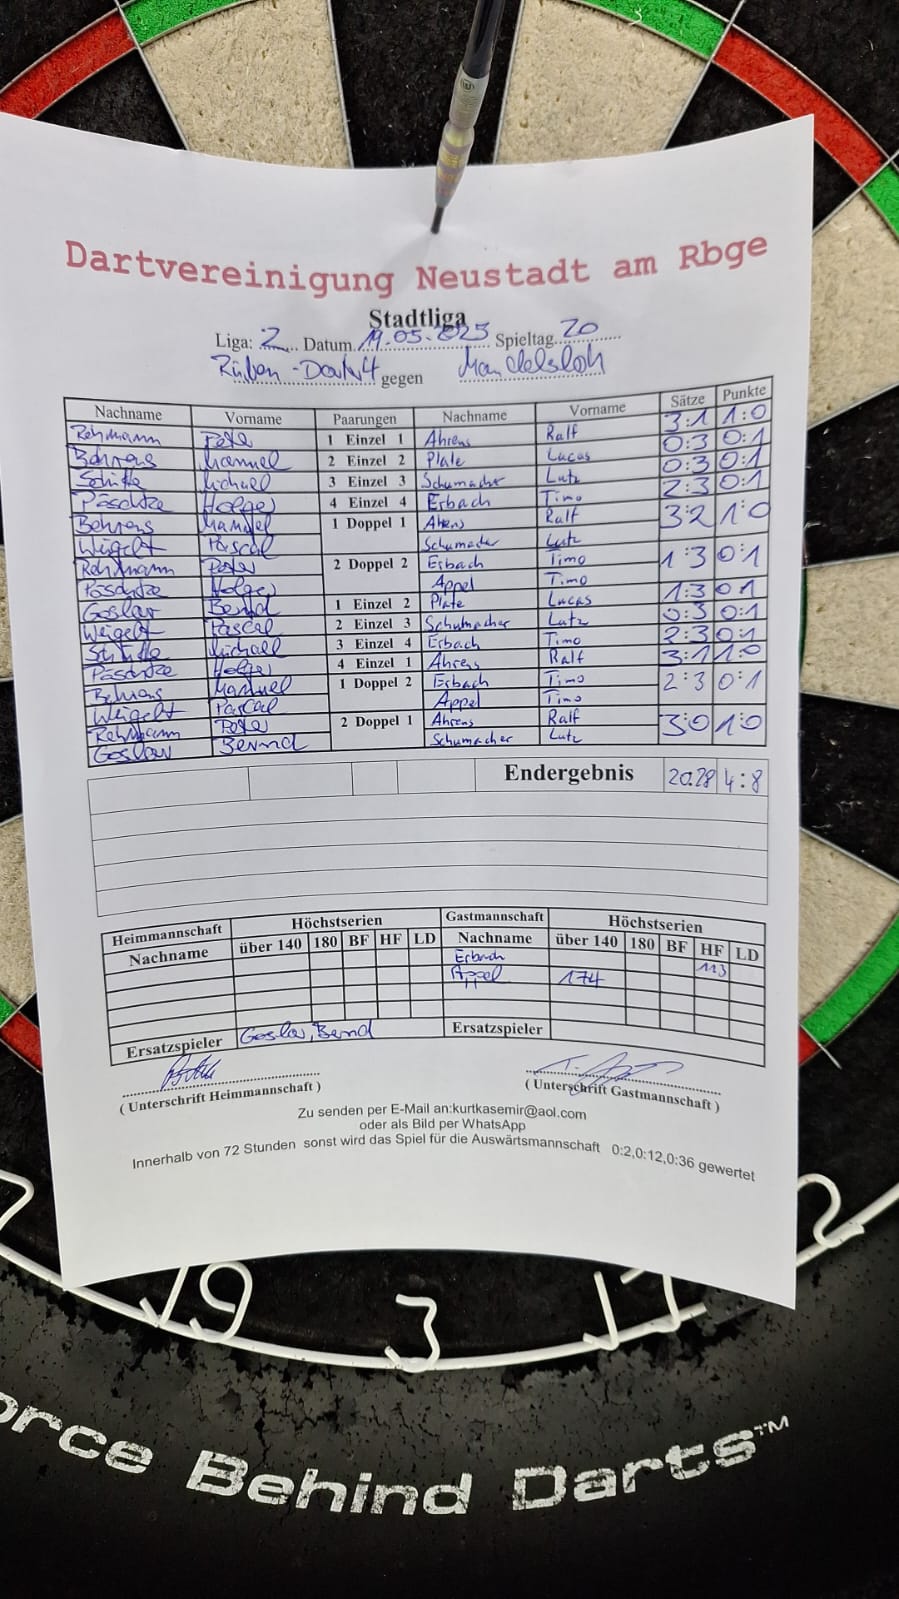 Dartvereinigung Neustadt am Rbge
Stadtliga
Liga: 2 Datum 19.05.2025 Spieltag 20
Rüben-Dart 4 gegen Mandelsloh
Nachname Vorname Paarungen Nachname Vorname Sätze Punkte
Rehmann Peter 1 Einzel 1 Ahrens Ralf 3:1 1:0
Behrens Manuel 2 Einzel 2 Plate Lucas 0:3 0:1
Michael 3 Einzel 3 Schumacher Lutz 0:3 0:1
Päschtze Holger 4 Einzel 4 Erbach Timo 2:3 0:1
Behrens Manuel 1 Doppel 1 Ahrens Ralf 3:2 1:0
Weigelt Pascal Schumacher Lutz
Rehmann Peter 2 Doppel 2 Erbach Timo 1:3 0:1
Päschtze Holger Appel Timo
Goslar Bernd 1 Einzel 2 Plate Lucas 1:3 0:1
Weigelt Pascal 2 Einzel 3 Schumacher Lutz 0:3 0:1
Michael 3 Einzel 4 Erbach Timo 2:3 0:1
Päschtze Holger 4 Einzel 1 Ahrens Ralf 3:1 1:0
Behrens Manuel 1 Doppel 2 Erbach Timo 2:3 0:1
Weigelt Pascal Appel Timo
Rehmann Peter 2 Doppel 1 Ahrens Ralf 3:0 1:0
Goslar Bernd Schumacher Lutz
Endergebnis 20:28 4:8
Heimmannschaft Höchstserien Gastmannschaft Höchstserien
Nachname über 140 180 BF HF LD Nachname über 140 180 BF HF LD
Erbach 113
Appel 174
Ersatzspieler Goslar, Bernd Ersatzspieler
( Unterschrift Heimmannschaft ) ( Unterschrift Gastmannschaft )
Zu senden per E-Mail an:kurtkasemir@aol.com
oder als Bild per WhatsApp
Innerhalb von 72 Stunden sonst wird das Spiel für die Auswärtsmannschaft 0:2,0:12,0:36 gewertet
19 3 17 2
orce Behind Darts™